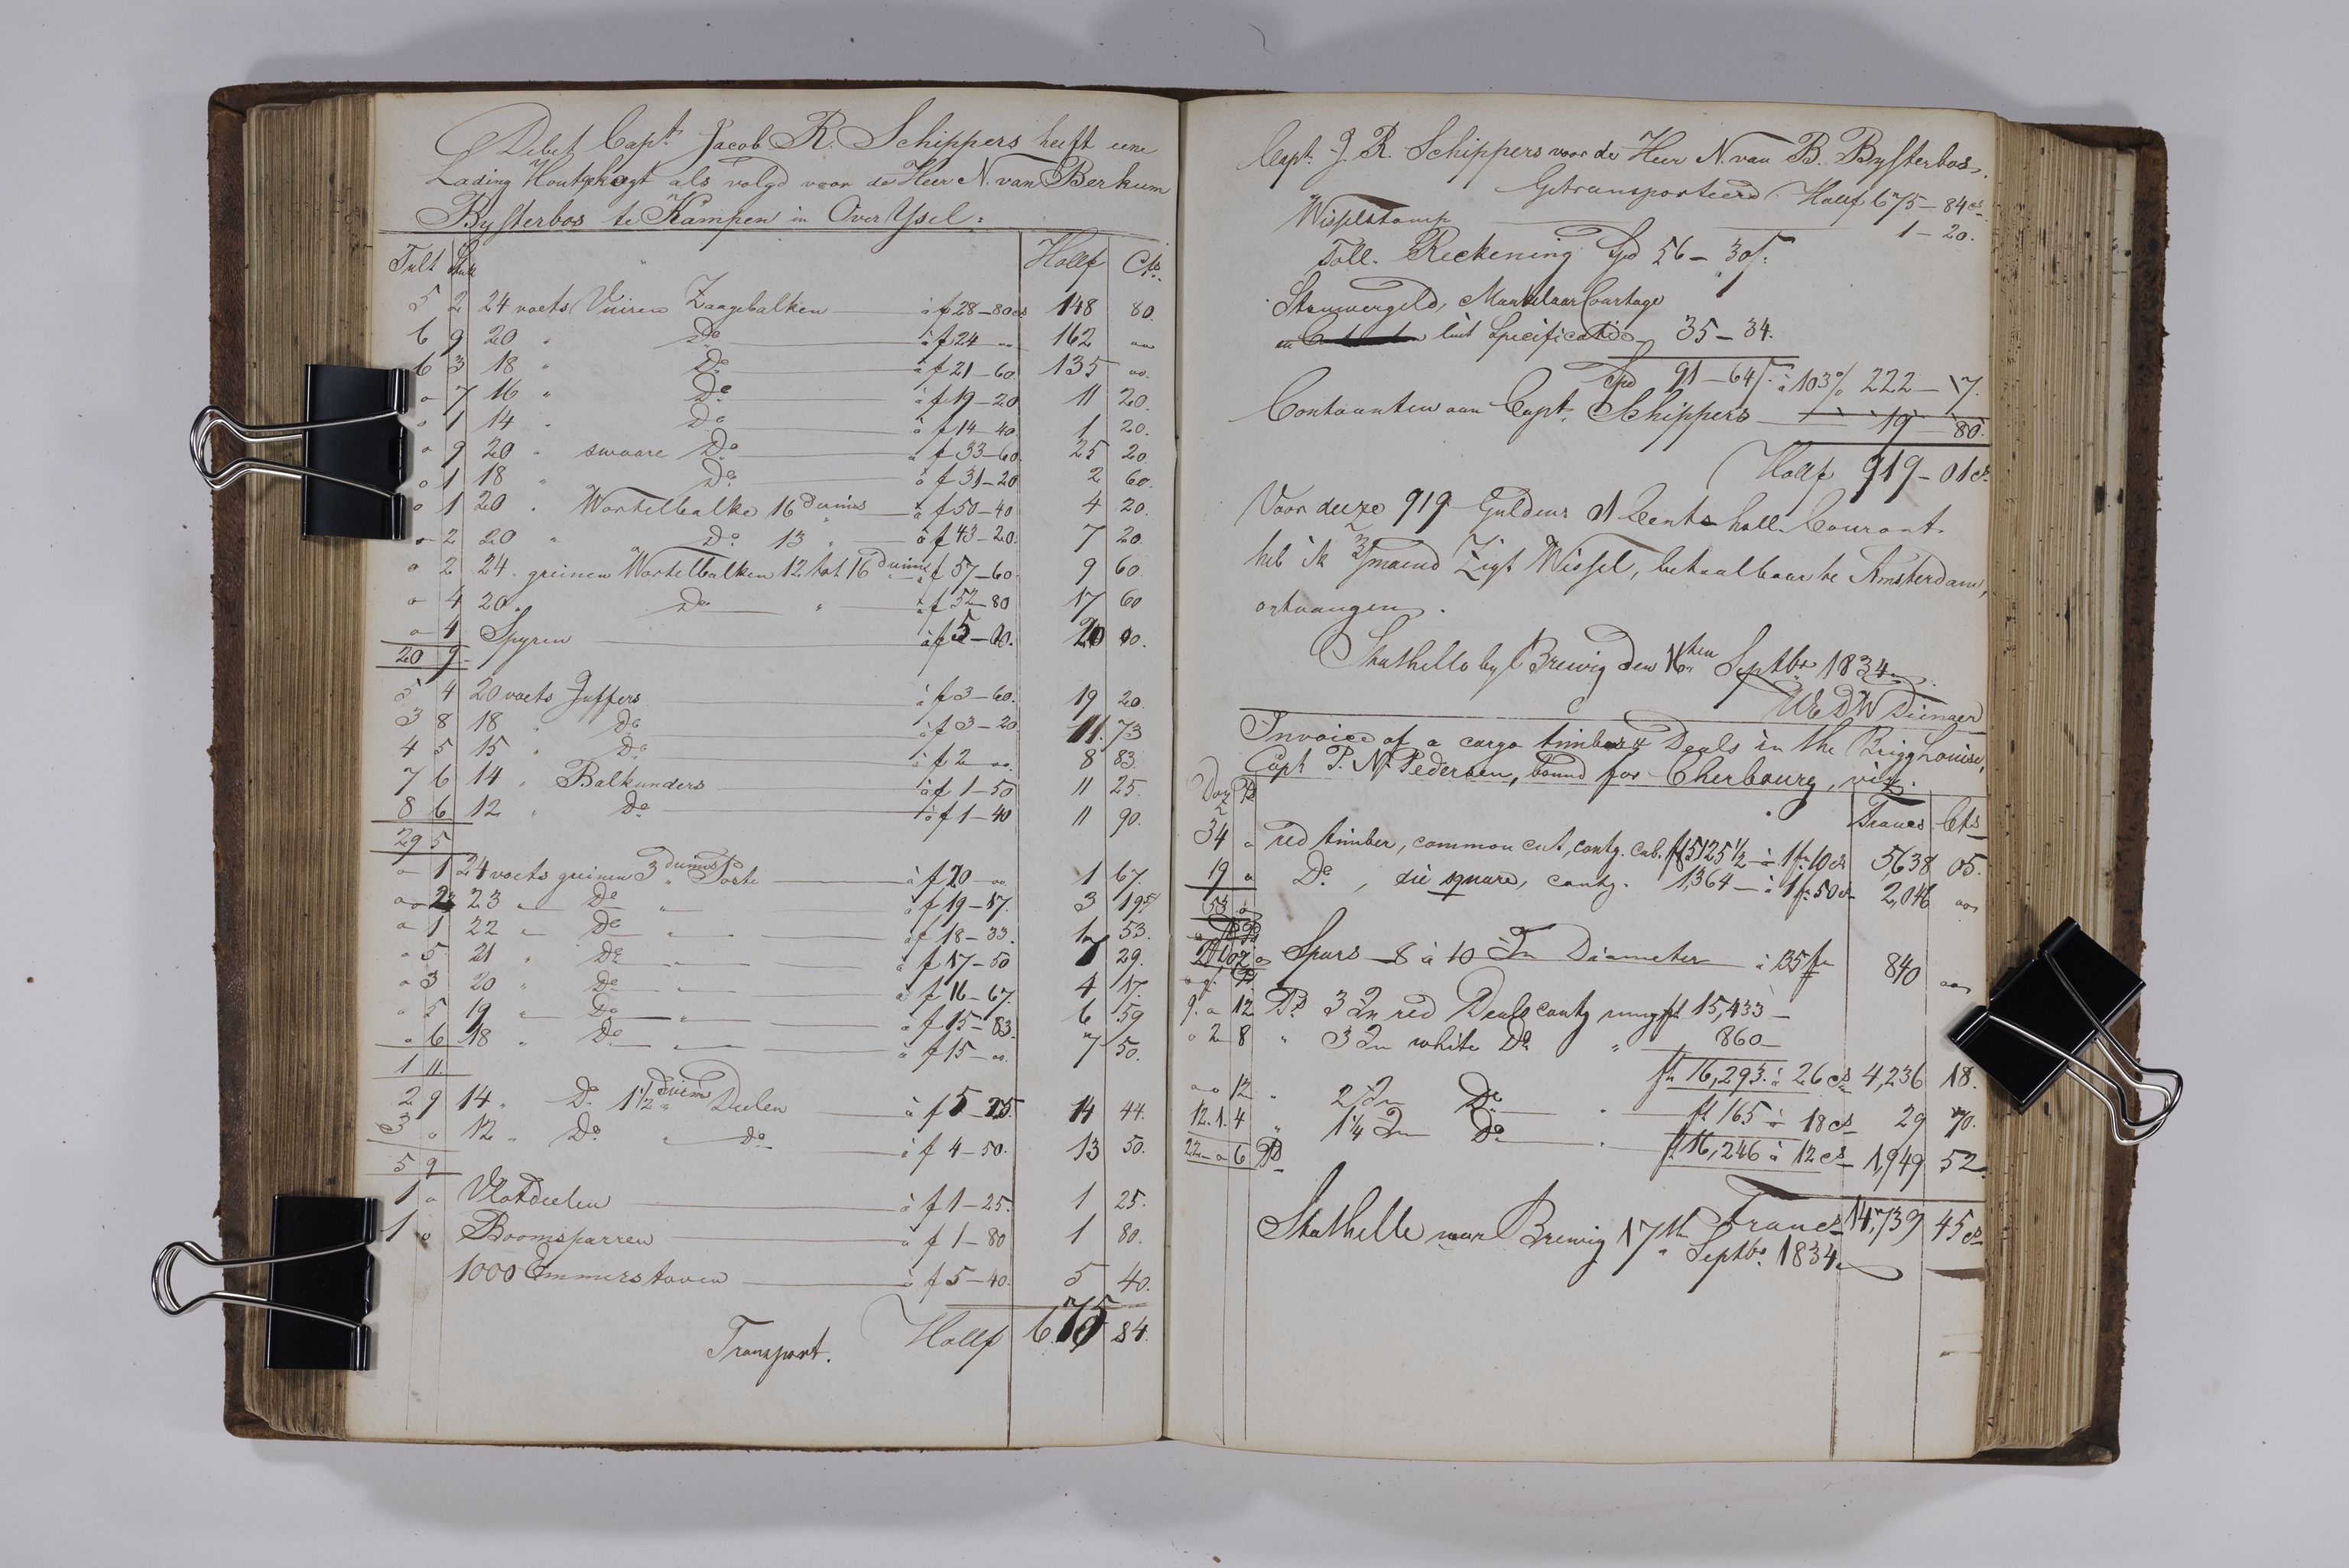 Debet Capt. Jacob R. Schippers heeft eene
Lading Hout gekogt als volgd voor de Heer N. van Berkum
Bysterbos te Kampen in Over Ysel:
Tult Stuk Hollf Cts.
5 2 24 voets Vuiren Zaagebalken à f 28–80cs 148 80.
6 9 20 " Do à f 24 – " 162 "
6 3 18 " Do à f 21–60. 135 oo.
" 7 16 " Do à f 19–20 11 20.
" 1 14 " Do à f 14–40. 1 20.
" 9 20 " swaare Do à f 33–60. 25 20.
" 1 18 " Do à f 31–20 2 60.
" 1 20 " Wortelbalke 16 duims à f 50–40 4 20.
" 2 20 " Do 13 " à f 43–20. 7 20.
" 2 24 " greinen Wortelbalken 12 tot 16 duims à f 57–60. 9 60
" 4 20 " Do " à f 52–80 17 60
" 4 Spyren à f 5–00. 20 00.
20 9
5 4 20 voets Juffers à f 3–60. 19 20.
3 8 18 " Do à f 3–20 11. 73
4 5 15 " Do à f 2 – oo. 8 83.
7 6 14 " Balkunders à f 1–50 11 25.
8 6 12 " Do à f 1–40 11 90.
29 5
" 1 24 voets greinen 3 duims Poste à f 20 – oo. 1 67.
" 2 23 " Do " à f 19–17. 3 19
" 1 22 " Do " à f 18–33. 1 53.
" 5 21 " Do " à f 17–50 7 29.
" 3 20 " Do " à f 16–67. 4 17.
" 5 19 " Do " à f 15–83. 6 59
" 6 18 " Do " à f 15 – oo. 7 50.
1 11.
2 9 14 " Do 1½ duims Deelen à f 5–25. 14 44.
3 " 12 " Do " Do à f 4–50. 13 50.
5 9
1 " Vlotdeelen à f 1–25. 1 25.
1 " Boomsparren à f 1–80 1 80.
1000 Emmerstaven à f 5–40. 5 40.
Transport. Hollf 675 84.
Capt. J. R. Schippers voor de Heer N. van B. Bysterbos.
Getransporteerd Hollf 675–84cs
Wisselstamp 1–20.
Toll. Reckening Spd 56–30
Stauwergeld, Maakelaar Courtage
luit Specificatie 35–34.
Spd 91–64 à 103% 222–17.
Contaanten aan Capt. Schippers 19 80.
Hollf 919–01cs
Voor deeze 919 Guldens 01 Cents holl. Courant.
heb ik 3/maend Zigt Wissel, betaalbaar te Amsterdam,
ontvangen.
Stathelle by Brewig den 16ten Septbr. 1834.
Invoice of a cargo timber & Deals in the Brigg Louise,
Capt P. N. Pedersen, bound for Cherbourg, viz.
Doz Ps Francs Cts
34 " red timber, common cut, contg. cub. ft 5125½ à 1fr 10cs 5,638 05.
19 " Do, die square, contg. 1,364 – à 1fr 50cs 2,046 oo
53 "
Spars 8 à 10 In Diameter à 35 fr 840 oo
9 " 12 Ps 3 In red Deals contg rung ft 15,433 –
" 2 8 " 3 In white Do " 860 –
ft 16,293. à 26 cs 4,236 18.
" " 12 " 2 In Do " ft 165 à 18 cs 29 70.
12. 1. 4 " 1¼ In Do " ft 16,246 à 12 cs 1,949 52
22 " 6 Ps
Francs 14,739 45 cs
Stathelle near Brewig 17th Septbr. 1834.